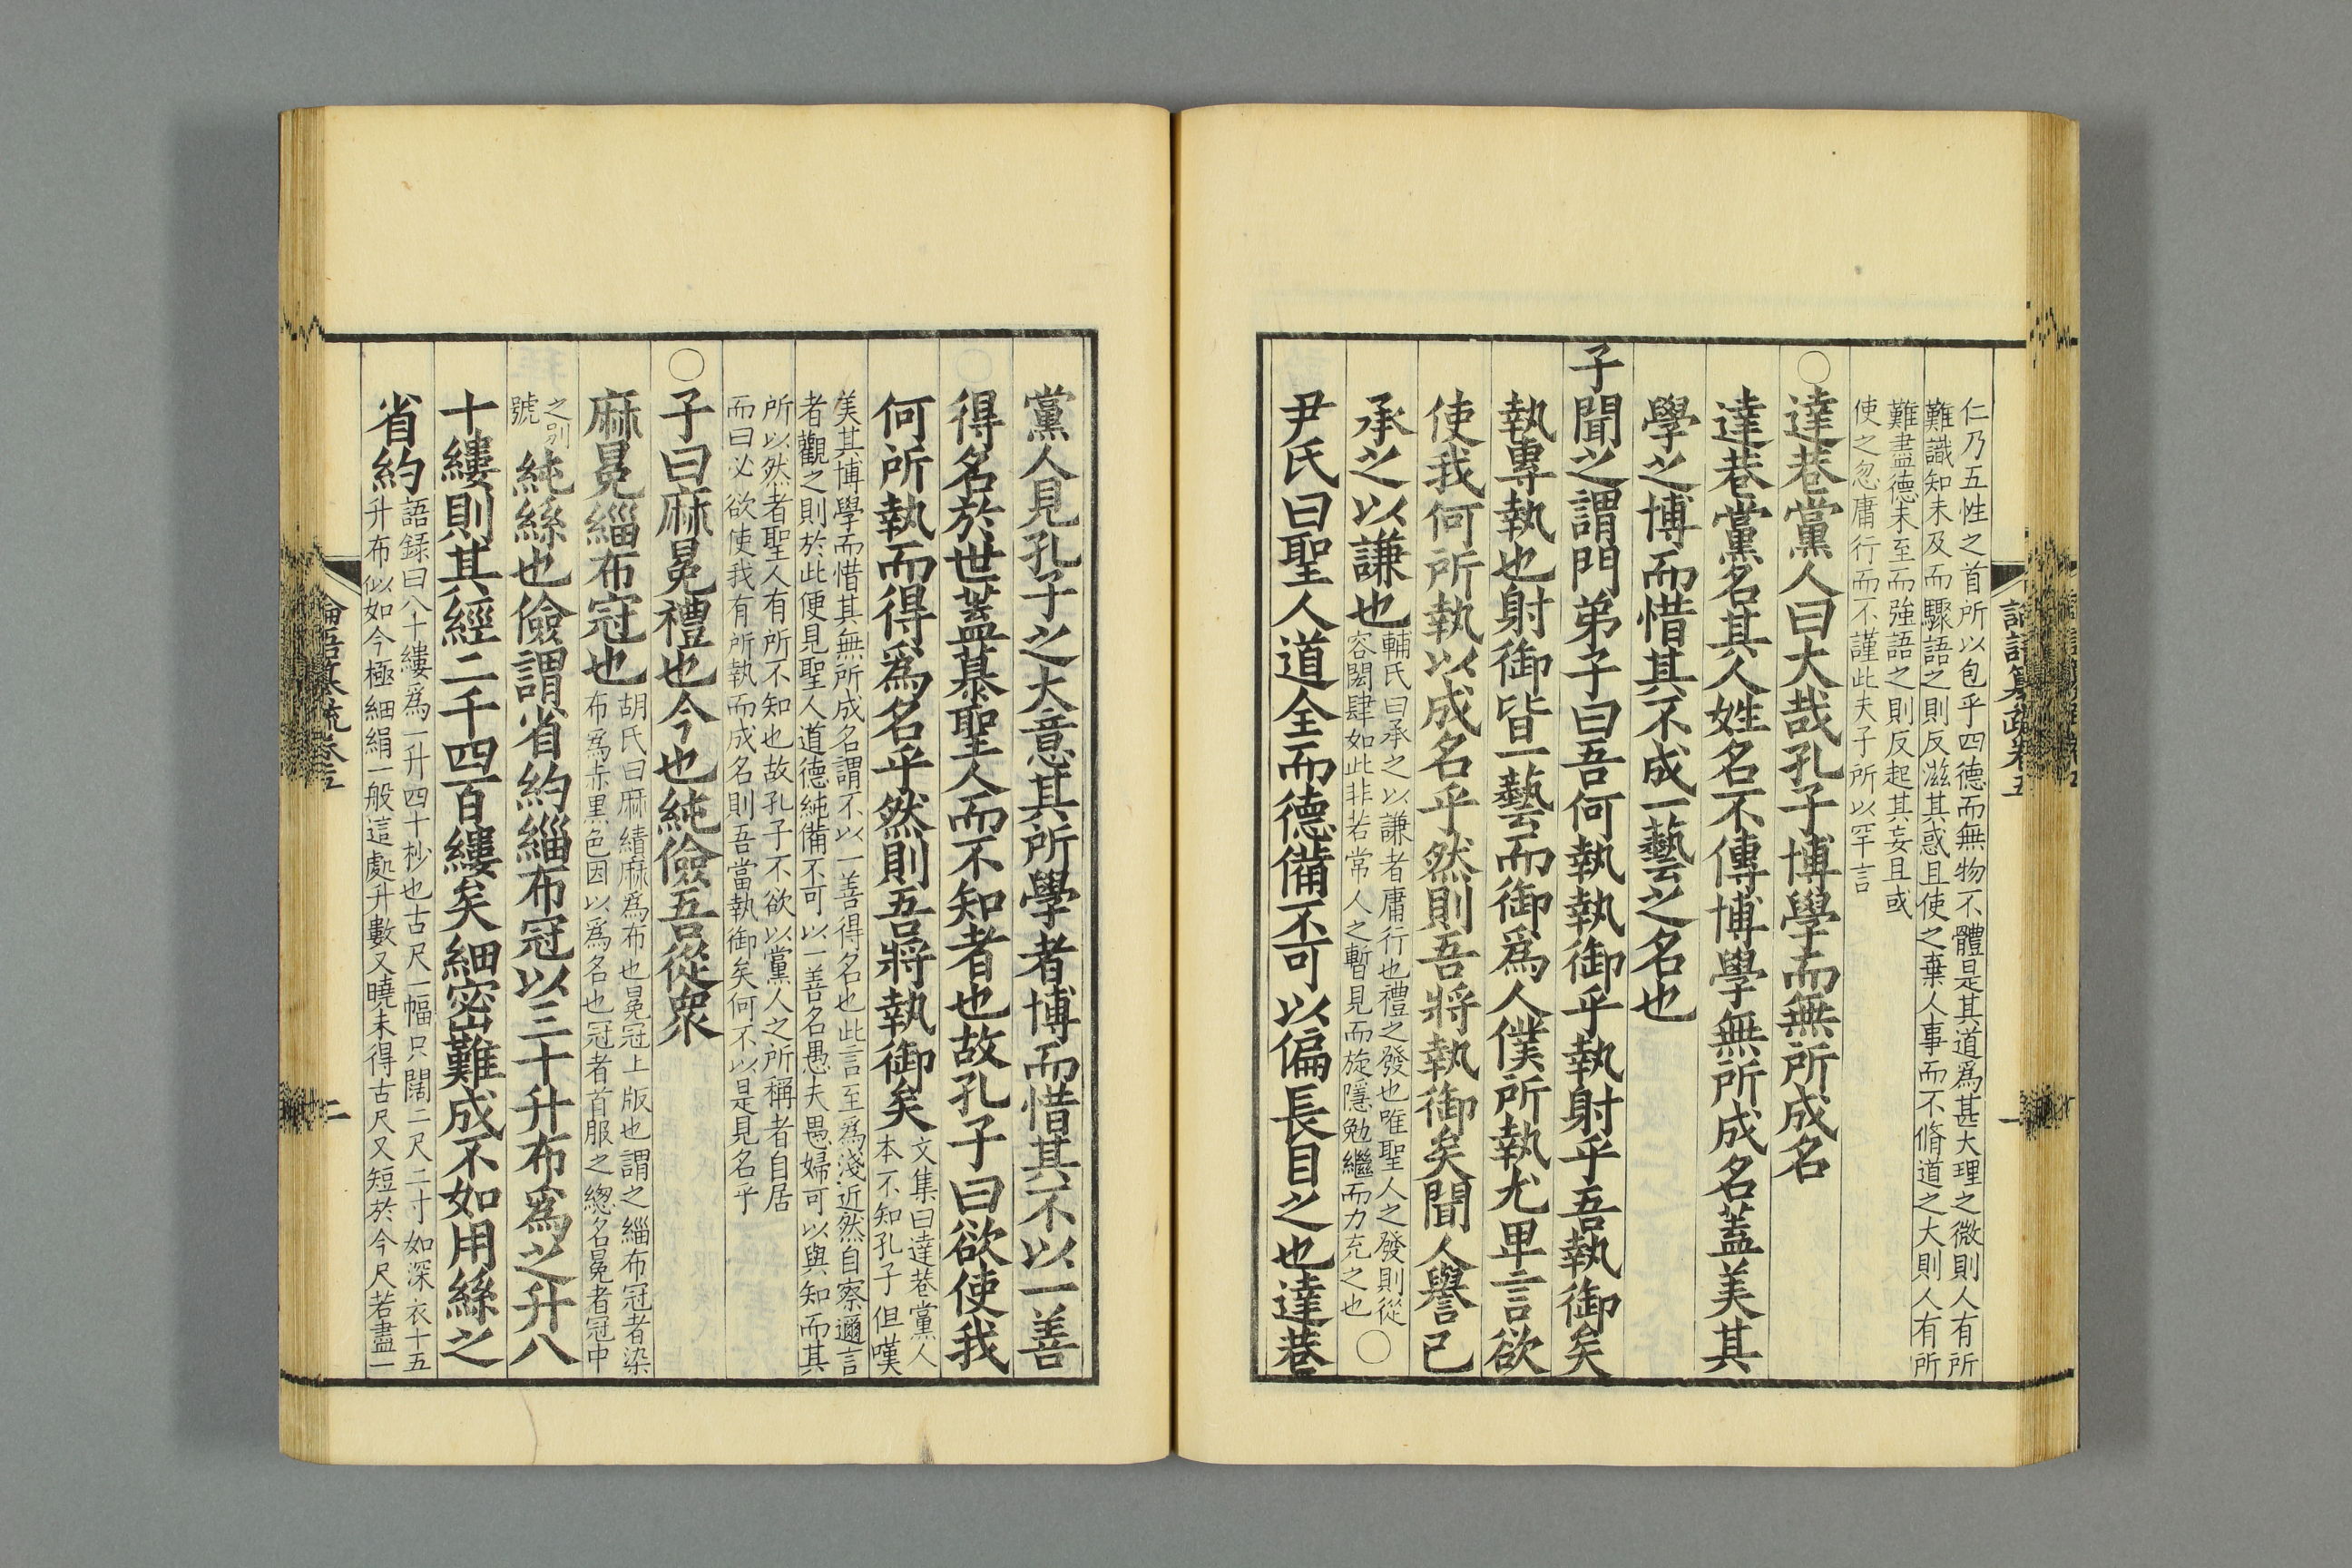 仁乃五性之首所以包乎四德而無物不體是其道爲甚大理之微則人有所
難識知未及而驟語之則反滋其惑且使之棄人事而不脩道之大則人有所
難盡德未至而強語之則反起其妄且或
使之忽庸行而不謹此夫子所以罕言
○達巷黨人曰大哉孔子博學而無所成名
達巷黨名其人姓名不傳博學無所成名蓋美其
學之博而惜其不成一藝之名也
子聞之謂門弟子曰吾何執執御乎執射乎吾執御矣
執專執也射御皆一藝而御爲人僕所執尤卑言欲
使我何所執以成名乎然則吾將執御矣聞人譽己
承之以謙也
輔氏曰承之以謙者庸行也禮之發也唯聖人之發則從
容閎肆如此非若常人之暫見而旋隱勉繼而力充之也
○
尹氏曰聖人道全而德備不可以偏長目之也達巷
論語纂疏卷五
一
黨人見孔子之大意其所學者博而惜其不以一善
得名於世蓋慕聖人而不知者也故孔子曰欲使我
何所執而得爲名乎然則吾將執御矣
文集曰達巷黨人
本不知孔子但嘆
美其博學而惜其無所成名謂不以一善得名也此言至爲淺近然自察邇言
者觀之則於此便見聖人道德純備不可以一善名愚夫愚婦可以與知而其
所以然者聖人有所不知也故孔子不欲以黨人之所稱者自居
而曰必欲使我有所執而成名則吾當執御矣何不以是見名乎
○子曰麻冕禮也今也純儉吾從衆
麻冕緇布冠也
胡氏曰麻績麻爲布也冕冠上版也謂之緇布冠者染
布爲赤黒色因以爲名也冠者首服之緫名冕者冠中
之別
號
純絲也儉謂省約緇布冠以三十升布爲之升八
十縷則其經二千四百縷矣細密難成不如用絲之
省約
語録曰八十縷爲一升四十杪也古尺一幅只闊二尺二寸如深衣十五
升布似如今極細絹一般這處升數又曉未得古尺又短於今尺若盡一
論語纂疏卷五
二